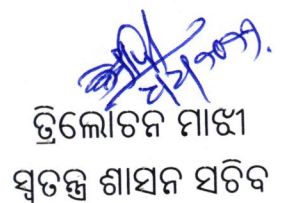 ତ୍ରିଲୋଚନ ମାଝୀ
ସ୍ଵତନ୍ତ୍ର ଶାସନ ସଚିବ